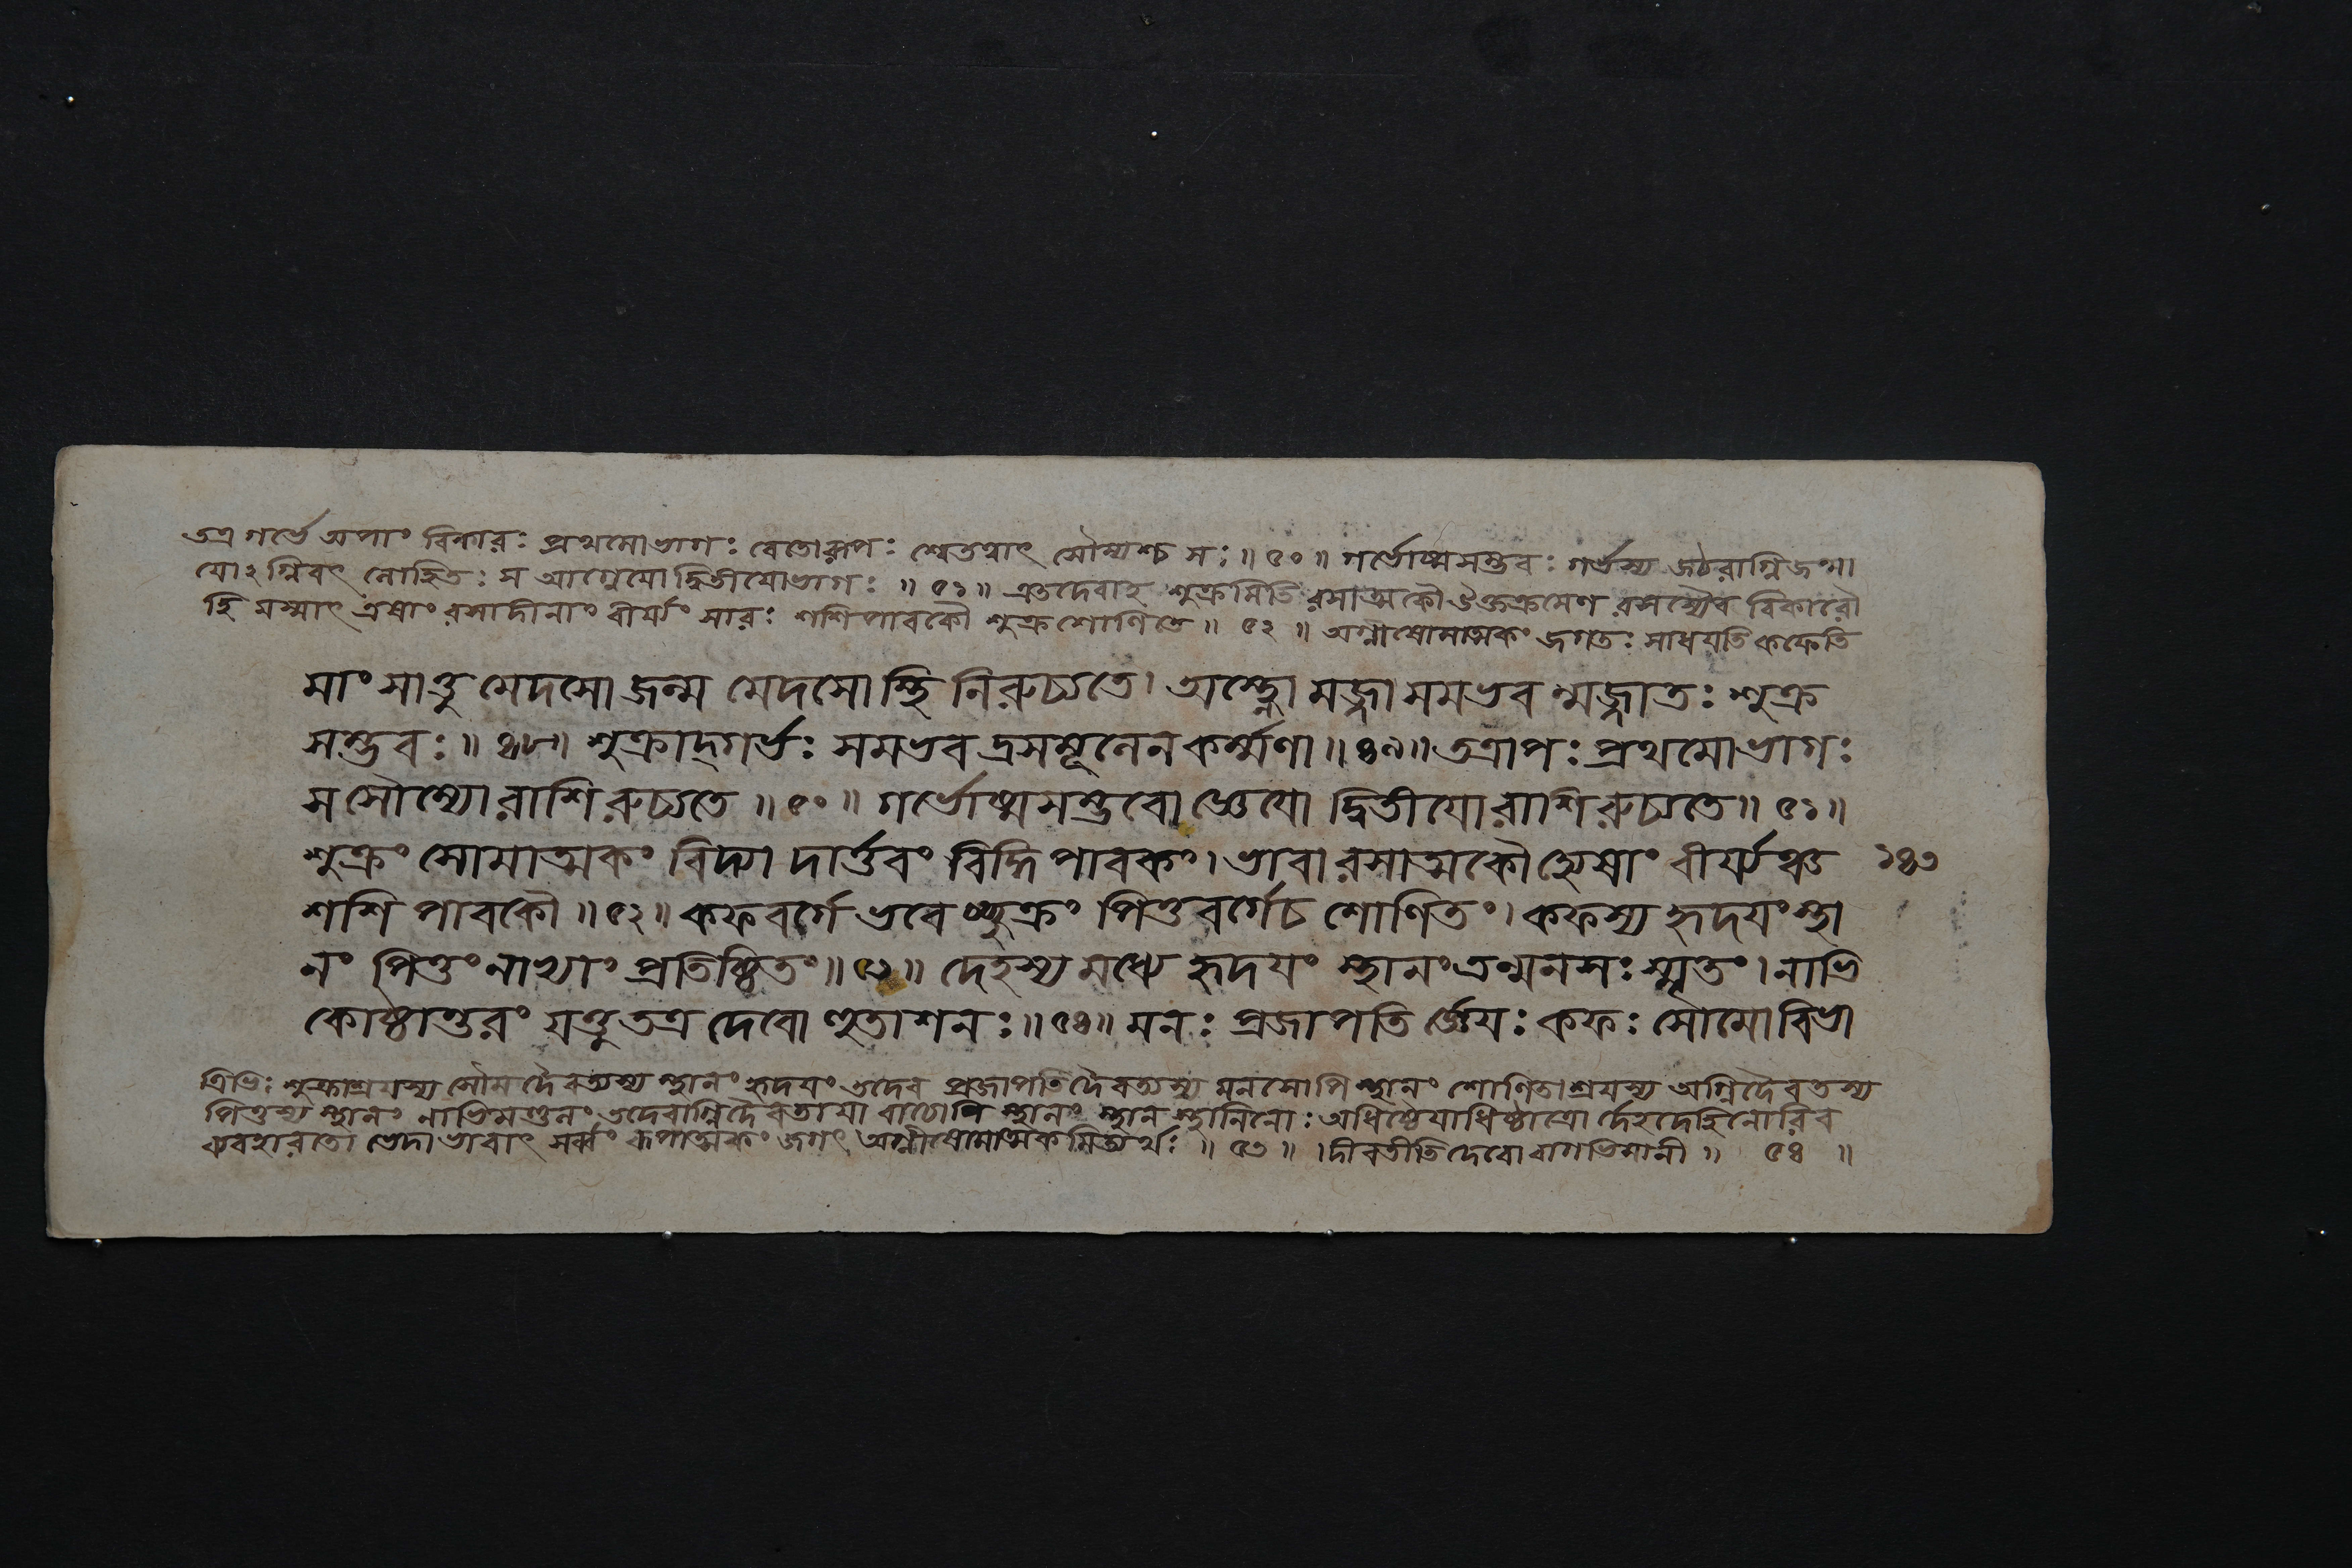 তত্র গর্ভে অপাং বিকারঃ প্রথমোভাগঃ রেতোরূপঃ শ্বেতত্বাৎ সৌম্যশ্চ সঃ ॥ ৫০ ॥ গর্ভোষ্মসম্ভবঃ গর্ভস্য জঠরাগ্নিজন্মা
যোঽগ্নিবৎ লোহিতঃ স আগ্নেয়োদ্বিতীয়োভাগঃ ॥ ৫১ ॥ এতদেবাহ শুক্রমিতি রসাত্মকৌ উক্তক্রমেণ রসস্যৈব বিকারৌ
হি যস্মাৎ এষাং রসাদীনাং বীর্য্যং সারঃ শশিপাবকৌ শুক্রশোণিতে ॥ ৫২ ॥ অগ্নীষোমাত্মকং জগতঃ সাধয়তি কফেতি
মাংসাত্তু মেদসো জন্ম মেদসোস্থি নিরুচ্যতে। অস্থ্নো মজ্জা সমভব ন্মজ্জাতঃ শুক্র
সম্ভবঃ ॥ ৪৮ ॥ শুক্রাদ্গর্ভঃ সমভব দ্রসমূলেন কর্ম্মণা ॥ ৪৯ ॥ তত্রাপঃ প্রথমোভাগঃ
স সৌম্যোরাশি রুচ্যতে ॥ ৫০ ॥ গর্ভোষ্মসম্ভবো জ্ঞেয়ো দ্বিতীয়োরাশি রুচ্যতে ॥ ৫১ ॥
শুক্রং সোমাত্মকং বিদ্যা দার্ত্তবং বিদ্ধি পাবকং। ভাবারসাত্মকৌ হ্যেষাং বীর্য্যঞ্চ ১৪৩
শশি পাবকৌ ॥ ৫২ ॥ কফবর্গে ভবে চ্ছুক্রং পিত্তবর্গেচ শোণিতং। কফস্য হৃদয়ং স্থা
নং পিত্তং নাভ্যাং প্রতিষ্ঠিতং ॥ ৫৩ ॥ দেহস্য মধ্যে হৃদয়ং স্থানং তন্মনসঃ স্মৃতং। নাভি
কোষ্ঠান্তরং যত্তু তত্র দেবো হুতাশনঃ ॥ ৫৪ ॥ মনঃ প্রজাপতি র্জ্ঞেয়ঃ কফঃ সৌমোবিভা
ত্রিভিঃ শুক্রাশ্রয়স্য সৌমদৈবত্যস্য স্থানং হৃদয়ং তদেব প্রজাপতিদৈবত্যস্য মনসোপি স্থানং শোণিতাশ্রয়স্য অগ্নিদৈবতস্য
পিত্তস্য স্থানং নাভিমণ্ডলং তদেবাগ্নিদৈবতায়া বাচোপি স্থানং স্থান স্থানিনোঃ অধিষ্ঠেয়াধিষ্ঠাত্রো র্দেহদেহিনোরিব
ব্যবহারতো ভেদাভাবাৎ সর্ব্বং রূপাত্মকং জগৎ অগ্নীষোমাত্মকমিত্যর্থঃ ॥ ৫৩ ॥ ।দীব্যতীতি দেবো বাগভিমানী ॥ ৫৪ ॥